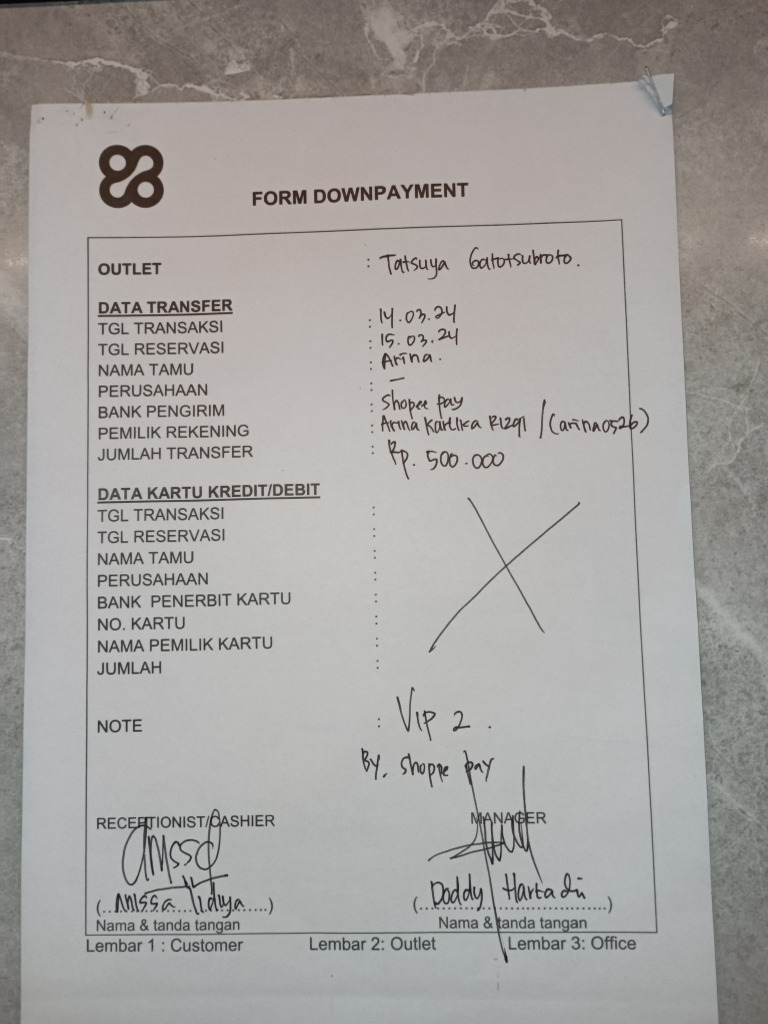 FORM DOWNPAYMENT
OUTLET : Tatsuya Gatotsubroto.
DATA TRANSFER
TGL TRANSAKSI : 14.03.24
TGL RESERVASI : 15.03.24
NAMA TAMU : Arina.
PERUSAHAAN : —
BANK PENGIRIM : Shopee pay
PEMILIK REKENING : Arina Kartika Rizqi / (arina0526)
JUMLAH TRANSFER : Rp. 500.000
DATA KARTU KREDIT/DEBIT
TGL TRANSAKSI :
TGL RESERVASI :
NAMA TAMU :
PERUSAHAAN :
BANK PENERBIT KARTU :
NO. KARTU :
NAMA PEMILIK KARTU :
JUMLAH :
NOTE : VIP 2.
By. shopee pay
RECEPTIONIST/CASHIER MANAGER
(Anissa) (Doddy)
Nama & tanda tangan Nama & tanda tangan
Lembar 1 : Customer Lembar 2: Outlet Lembar 3: Office